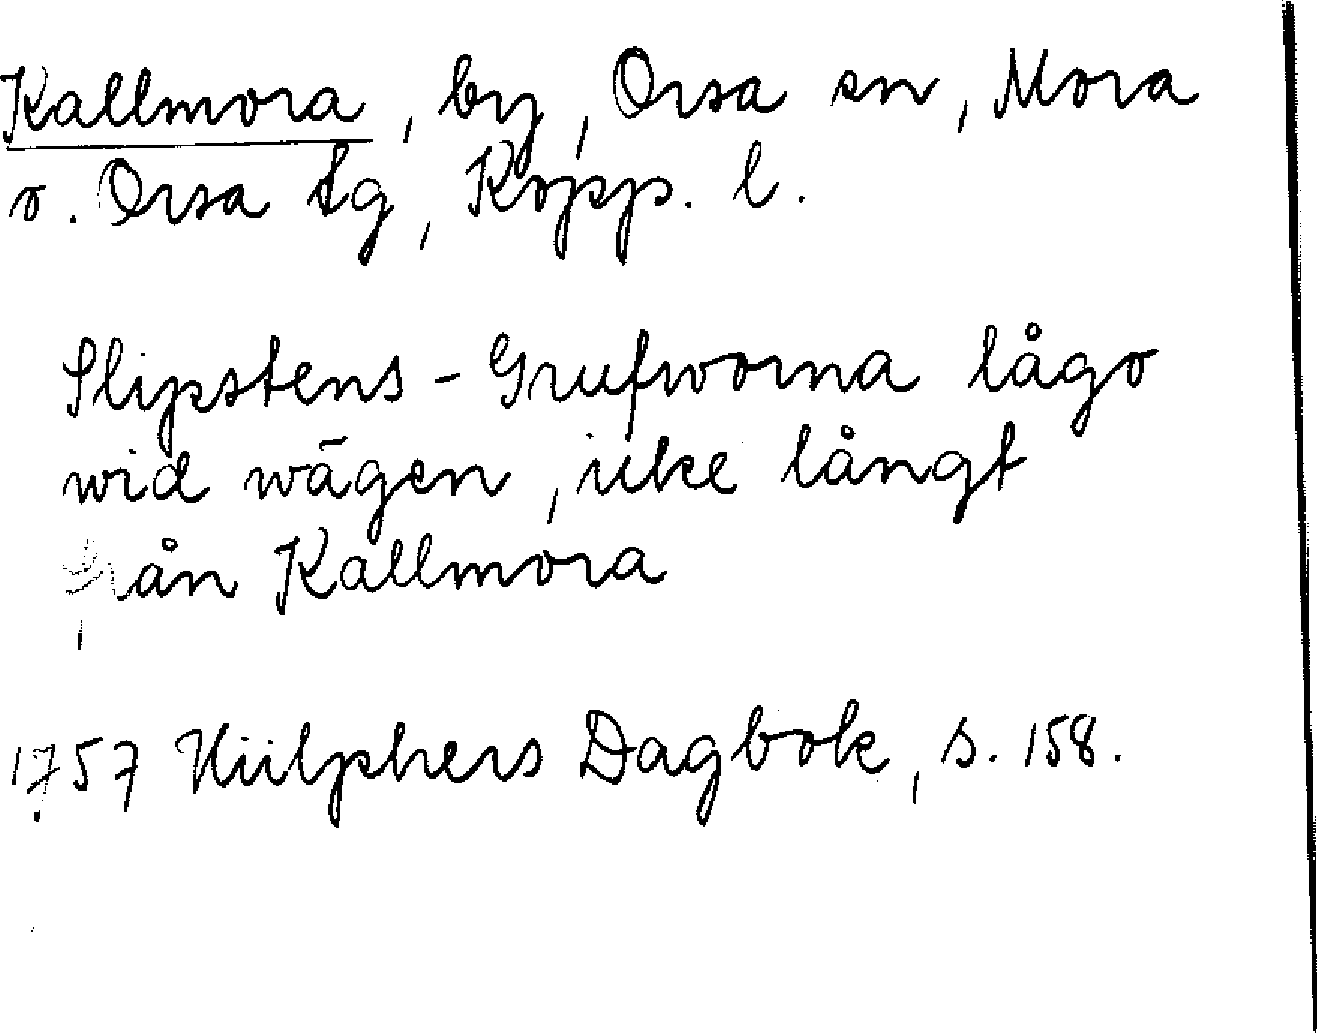 Kallmora, by, Orsa sn, Mora
o. Orsa tg, Kopp. l.
Slipstens-Grufworna lågo
wid wägen, icke långt
från Kallmora
1757 Hülphers Dagbok, s. 158.